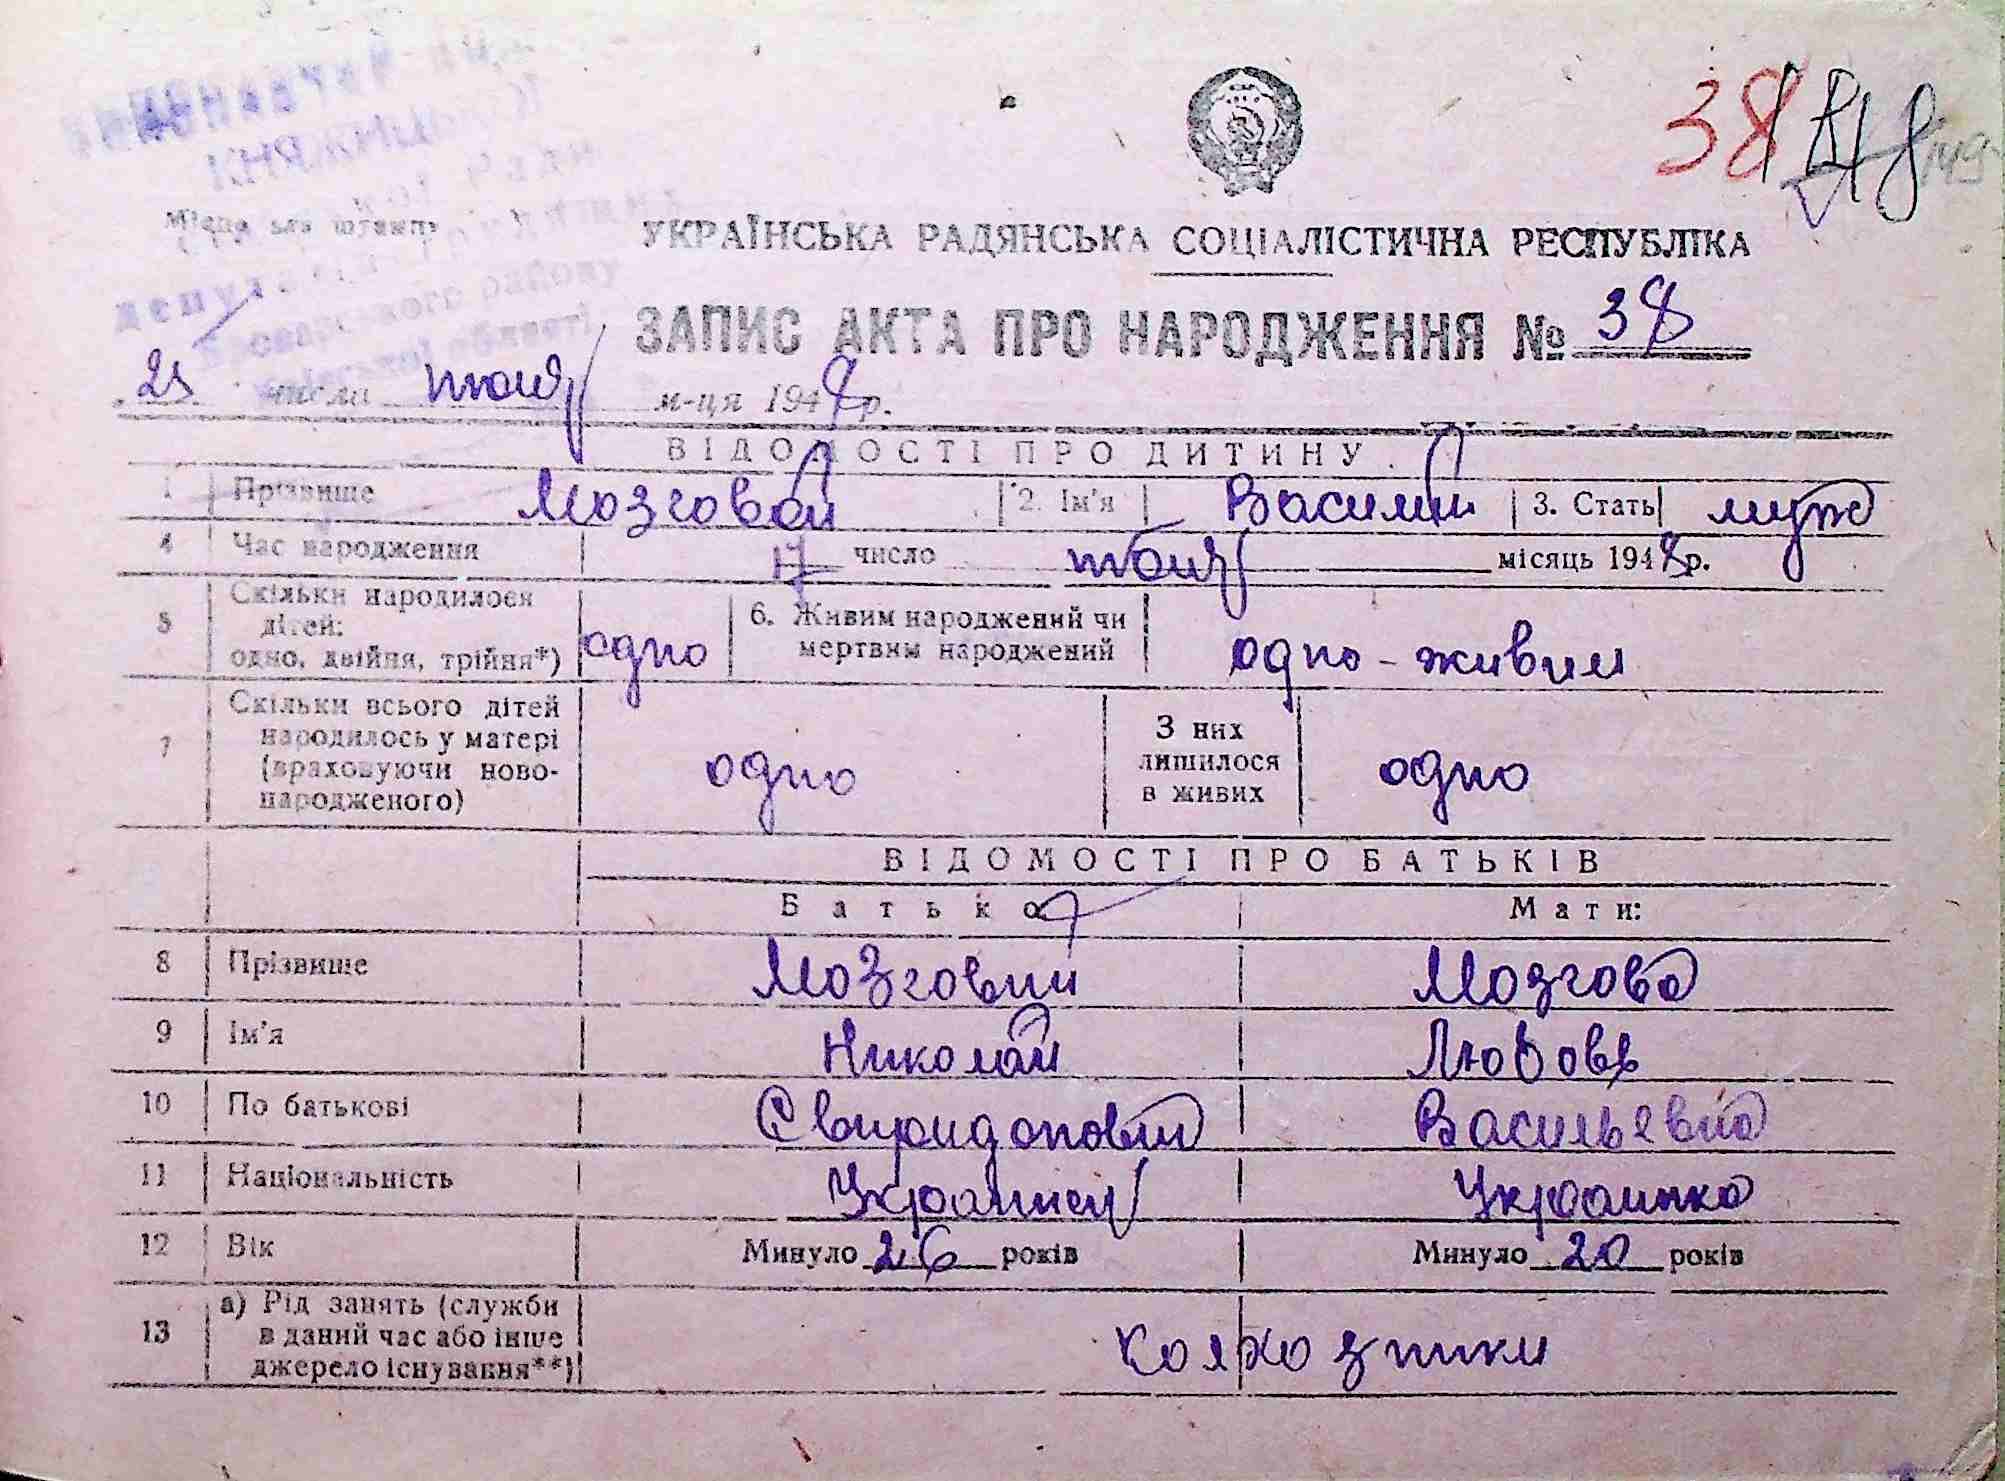 38
Місце для штампу
УКРАЇНСЬКА РАДЯНСЬКА СОЦІАЛІСТИЧНА РЕСПУБЛІКА
ЗАПИС АКТА ПРО НАРОДЖЕННЯ № 38
числа м-ця 1948 р.
ВІДОМОСТІ ПРО ДИТИНУ
1 Прізвище Мозговой 2. Ім'я Василий 3. Стать муж
4 Час народження 17 число мая місяць 1948 р.
5 Скільки народилося дітей: одно, двійня, трійня*) одно 6. Живим народжений чи мертвим народжений одно - живим
7 Скільки всього дітей народилось у матері (враховуючи ново-народженого) одно З них лишилося в живих одно
ВІДОМОСТІ ПРО БАТЬКІВ
Батько Мати:
8 Прізвище Мозговий Мозгова
9 Ім'я Николай Любовь
10 По батькові Свиридонови Васильевна
11 Національність Украинец Украинка
12 Вік Минуло 26 років Минуло 20 років
13 а) Рід занять (служби в даний час або інше джерело існування**) Колхозники